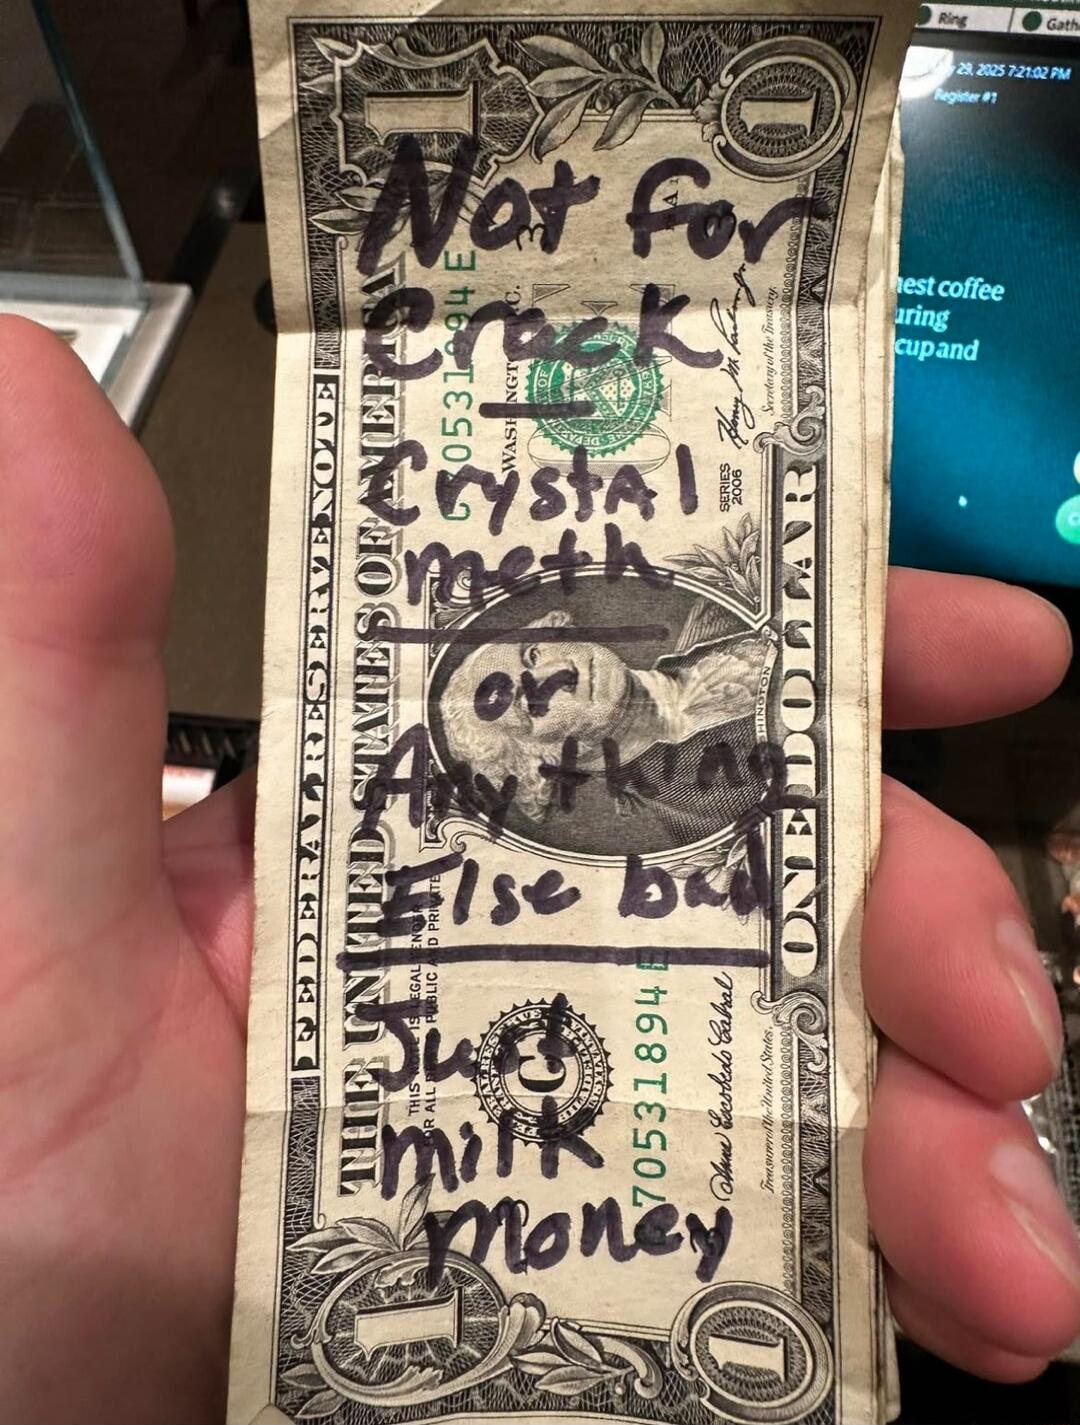 Not for
Crack
Crystal
meth
or
Any thing
Else bad
Just
milk
money
FEDERAL RESERVE NOTE
THE UNITED STATES OF AMERICA
THIS NOTE IS LEGAL TENDER
FOR ALL DEBTS PUBLIC AND PRIVATE
WASHINGTON, D.C.
C
3
3
70531894 E
SERIES
2006
Secretary of the Treasury.
Treasurer of the United States.
WASHINGTON
ONE DOLLAR
1
1
1
1
Ring
29, 2025 7:21:02 PM
Register #1
coffee
cup and